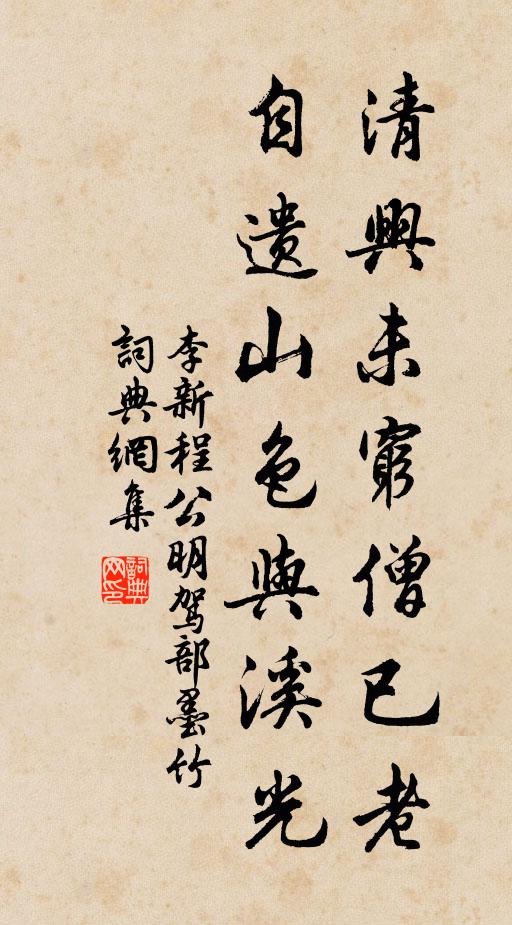 清興未窮僧已老
自遺山色與溪光
李新程公明駕部墨竹
詞典網集
詞典网印